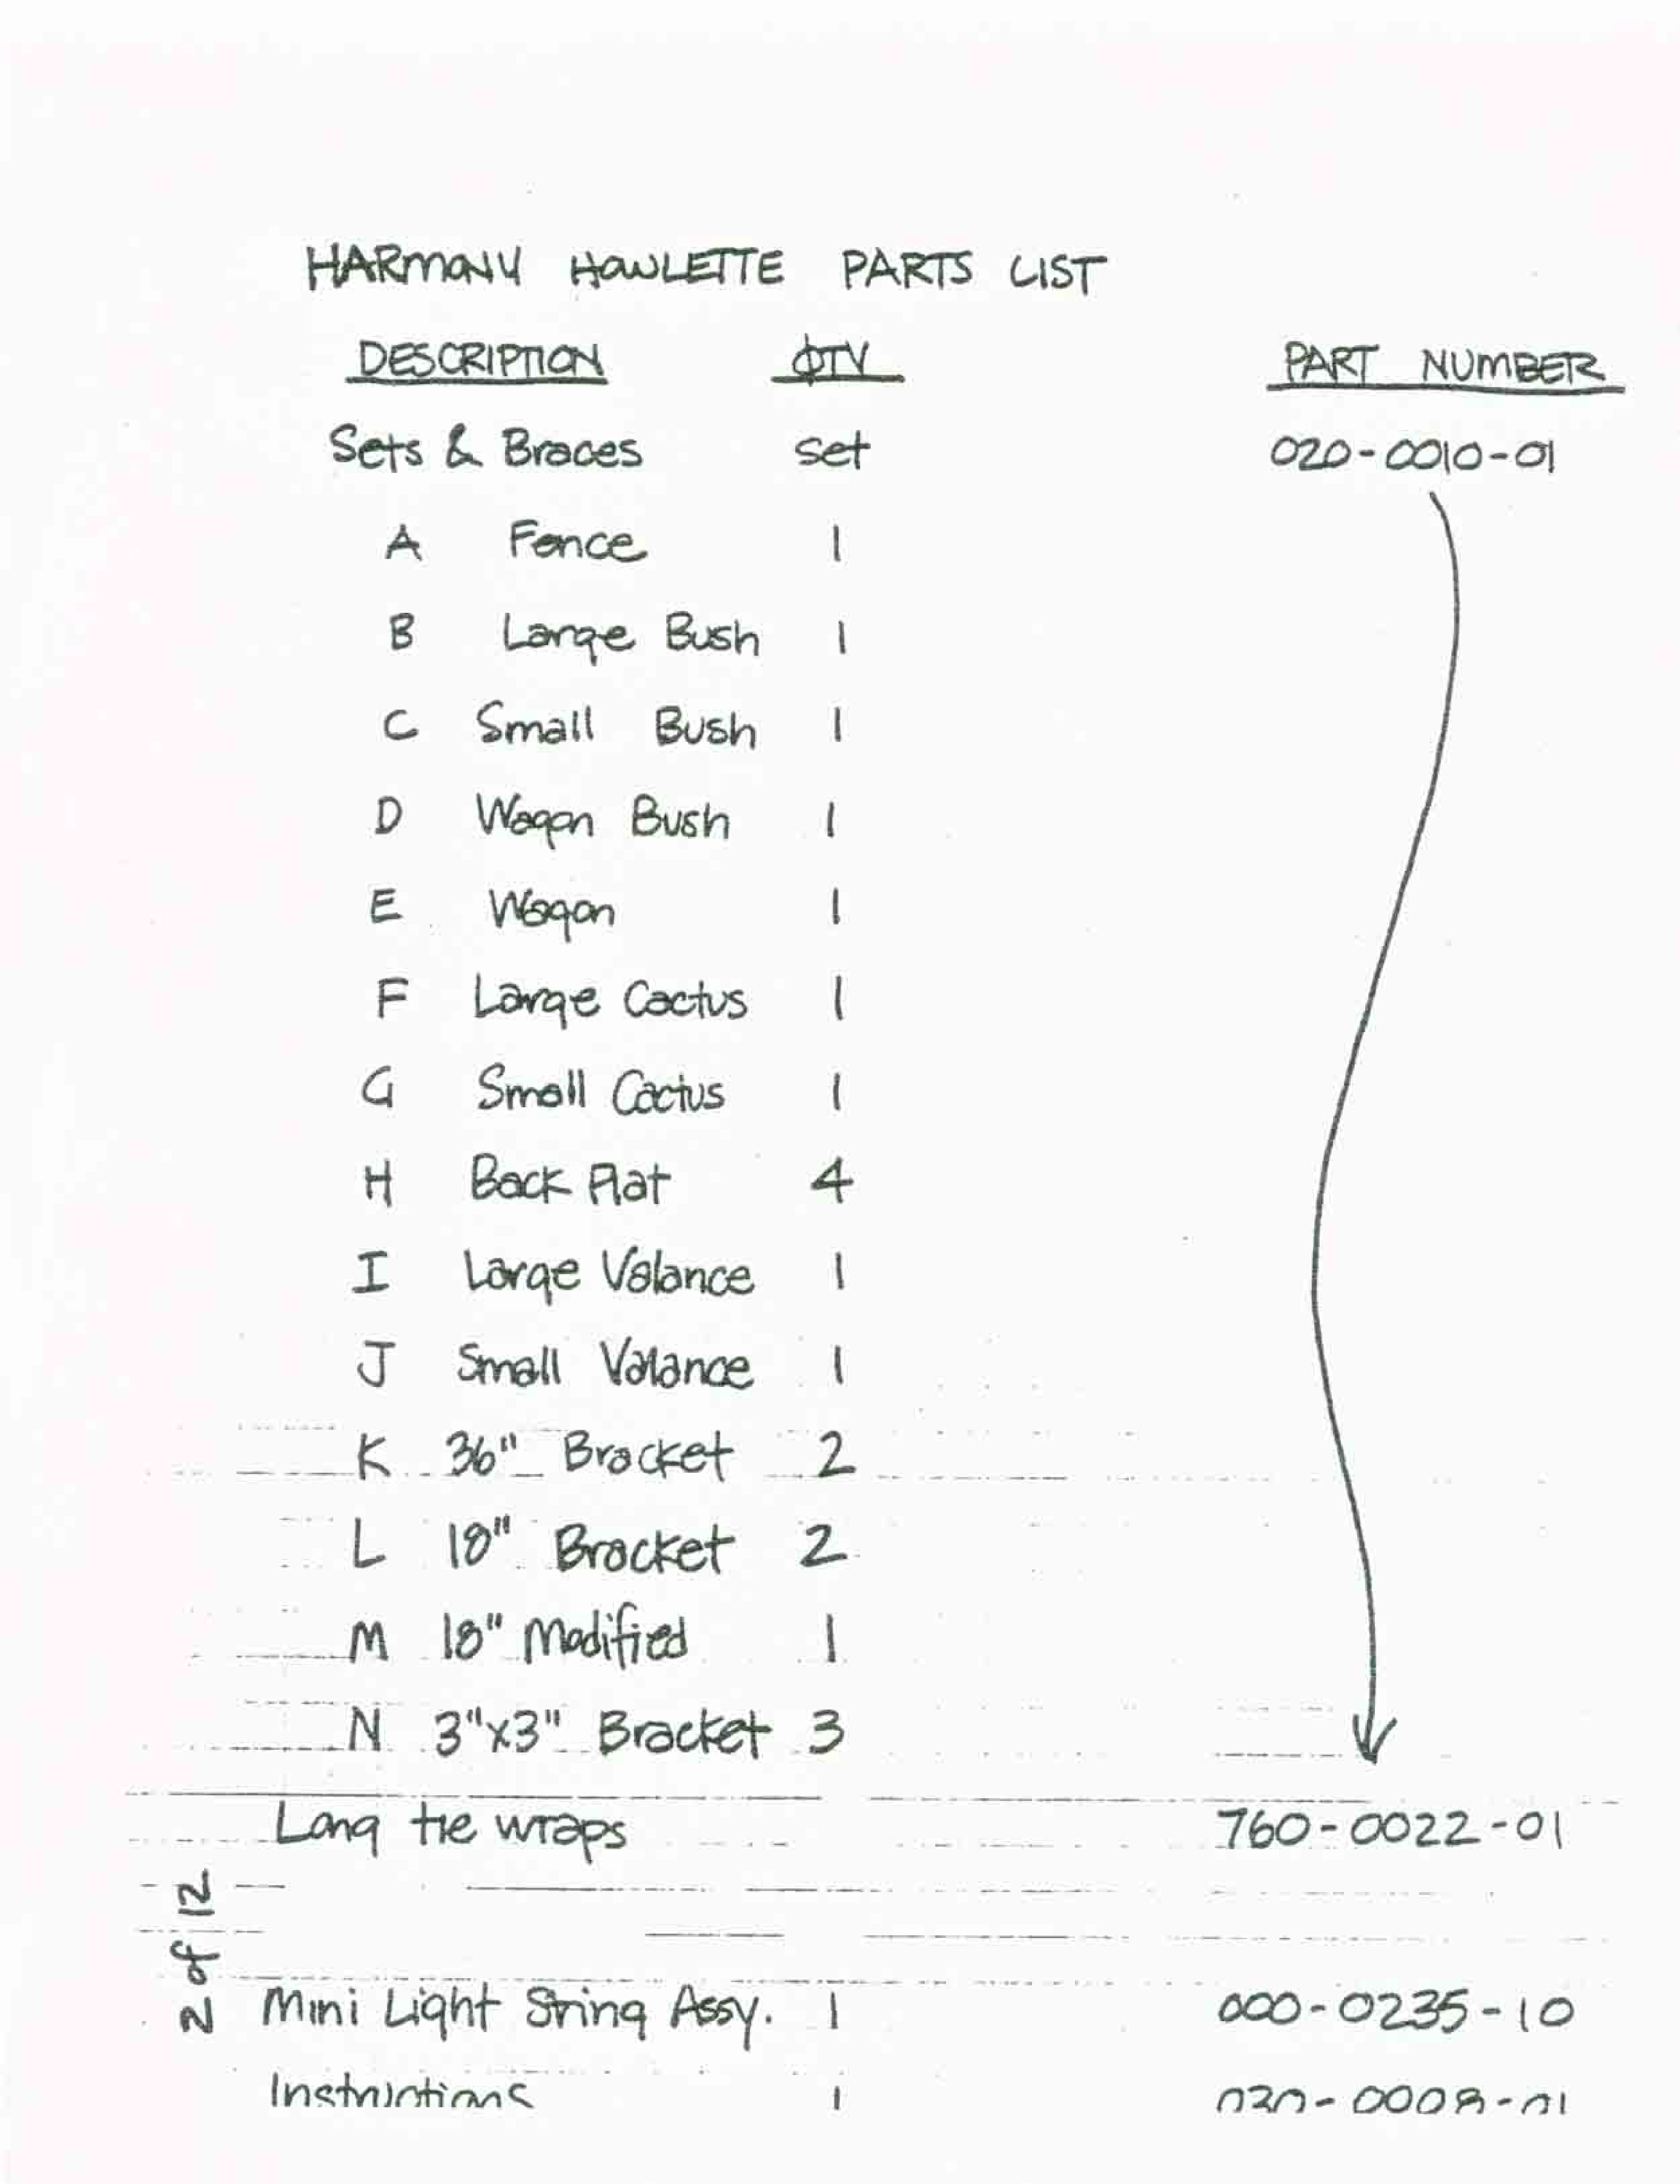 HARMONY HOWLETTE PARTS LIST
DESCRIPTION QTY PART NUMBER
Sets & Braces set 020-0010-01
A Fence 1
B Large Bush 1
C Small Bush 1
D Wagon Bush 1
E Wagon 1
F Large Cactus 1
G Small Cactus 1
H Back Flat 4
I Large Valance 1
J Small Valance 1
K 36" Bracket 2
L 18" Bracket 2
M 18" Modified 1
N 3"x3" Bracket 3
Long tie wraps 760-0022-01
2 of 12
Mini Light String Assy. 1 000-0235-10
Instructions 1